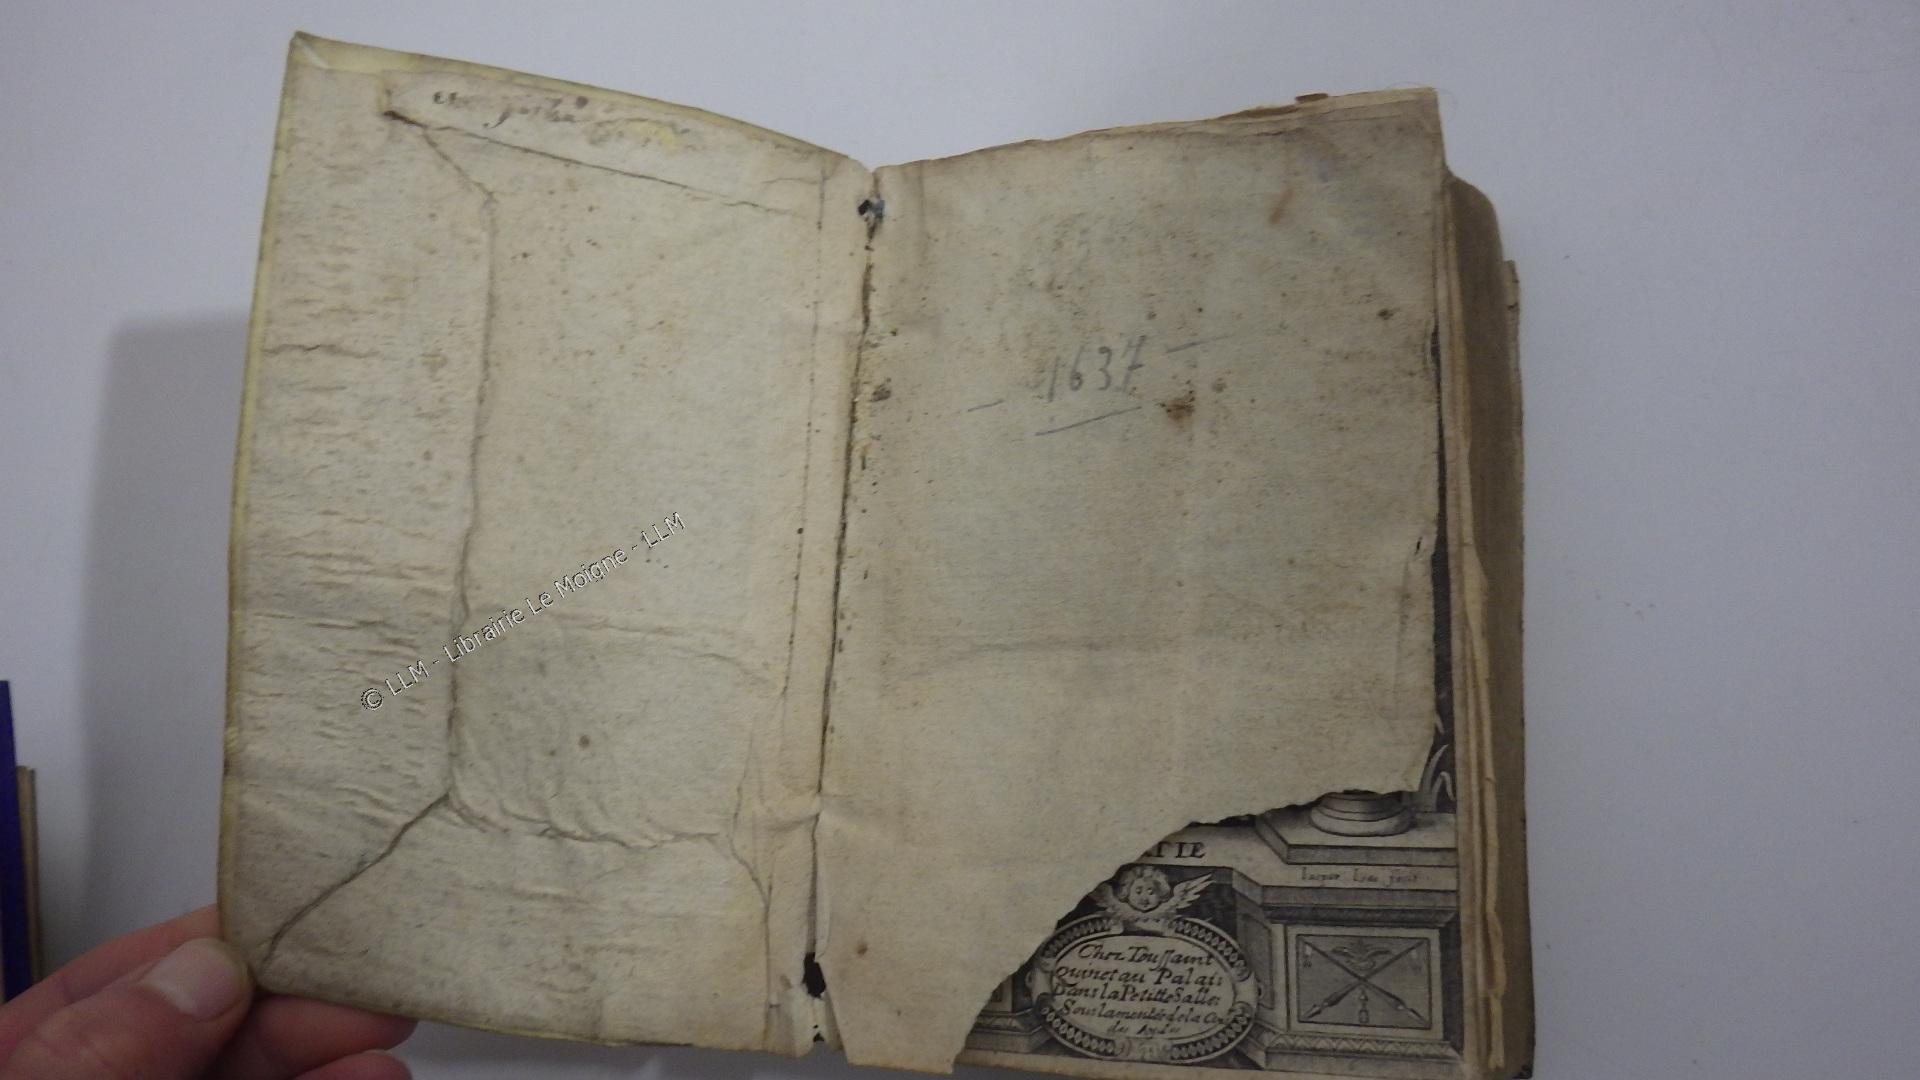 1637
© LLM - Librairie Le Moigne - LLM
TIE
Iaspar Isac fecit
Chez Toussaint
Quinet au Palais
Dans la Petitte Salles
Sous la monteé de la Cou
des Aydes